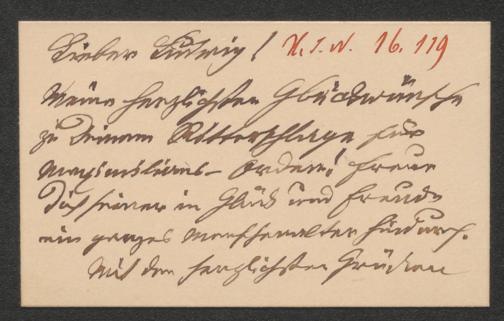 Lieber Ludwig! H.I.N. 16.119
Meine herzlichsten Glückwünsche
zu Deinem Ritterschlage für
Maximilians-Orden! Freue
Dich seiner in Glück und Freude
ein ganzes Menschenalter hindurch.
Mit den herzlichsten Grüßen